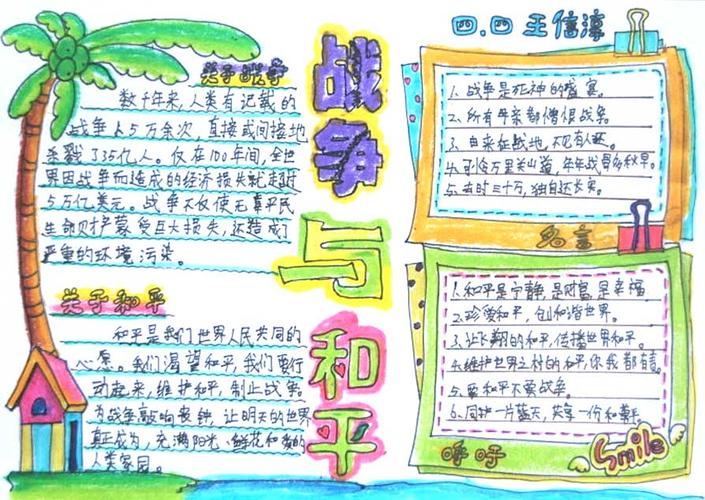 四.四 王信淳
战争与和平
关于战争
数千年来，人类有记载的
战争占5万余次，直接或间接地
杀戮了35亿人。仅在100年间，全世
界因战争而造成的经济损失就超过
5万亿美元。战争不仅使无辜平民
生命财产蒙受巨大损失，还造成了
严重的环境污染。
关于和平
和平是我们世界人民共同的
心愿。我们渴望和平，我们要行
动起来，维护和平，制止战争。
为战争敲响丧钟，让明天的世界
真正成为，充满阳光、鲜花和爱的
人类家园。
1. 战争是死神的盛宴。
2. 所有母亲都憎恨战争。
3. 由来征战地，不见有人还。
4. 可怜万里关山道，年年战骨多秋草。
5. 去时三十万，独自还长安。
名言
1. 和平是宁静，是财富，是幸福
2. 珍爱和平，创和谐世界。
3. 让飞翔的和平，传播世界和平。
4. 维护世界之村的和平，你我都有责。
5. 要和平不要战争。
6. 同护一片蓝天，共享一份和
呼吁
Smile